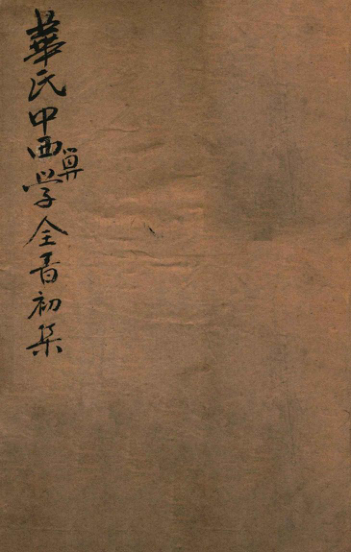 華氏中西算学全書初集